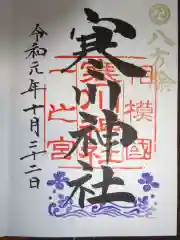 八方除
相模國
一之宮
寒川神社
寒川神社
令和元年十月二十二日